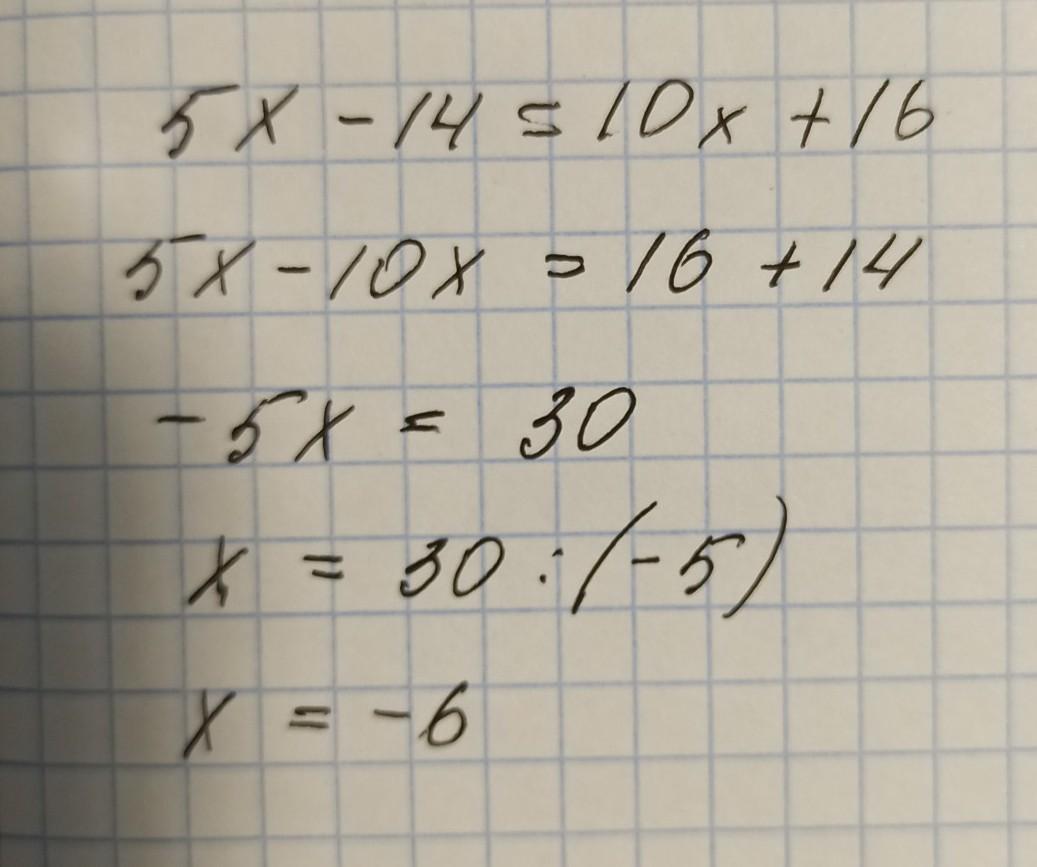 5x - 14 = 10x + 16
5x - 10x = 16 + 14
- 5x = 30
x = 30 : (-5)
x = -6